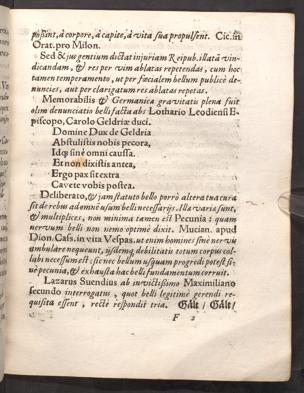 possint, à corpore, à capite, à vita sua propulsent. Cic. in
Orat. pro Milon.
Sed & jus gentium dictat injuriam Reipub. illatã vin-
dicandam, & res per vim ablatas repetendas, cum hoc
tamen temperamento, ut per fœcialem bellum publicè de-
nuncies, aut per clarigatum res ablatas repetas.
Memorabilis & Germanica gravitatis plena fuit
olim denunciatio belli facta ab: Lothario Leodiensi E-
piscopo, Carolo Geldriæ duci.
Domine Dux de Geldria
Abstulistis nobis pecora,
Idq́; sine omni caussa.
Et non dixistis antea,
Ergo pax sit extra
Cavete vobis postea.
Deliberato, & jam statuto bello porrò altera tua cura
sit de rebus ad emniũ usum belli necessarijs. Illæ variæ sunt,
& multiplices, non minima tamen est Pecunia: quam
nervum belli non nemo optimè dixit. Mucian. apud
Dion. Cass. in vita Vespas. ut enim homines sine nervis
ambulare nequeunt, ijsdemq́; debilitatis totum corpus col-
labi necessum est: sic nec bellum usquam progredi potest si-
ne pecunia, & exhausta hac belli fundamentum corruit.
Lazarus Suendius ab invictissimo Maximiliano
secundo interrogatus, quot belli legitimè gerendi re-
quisita essent, rectè respondit tria. Gält / Gält/
F 2